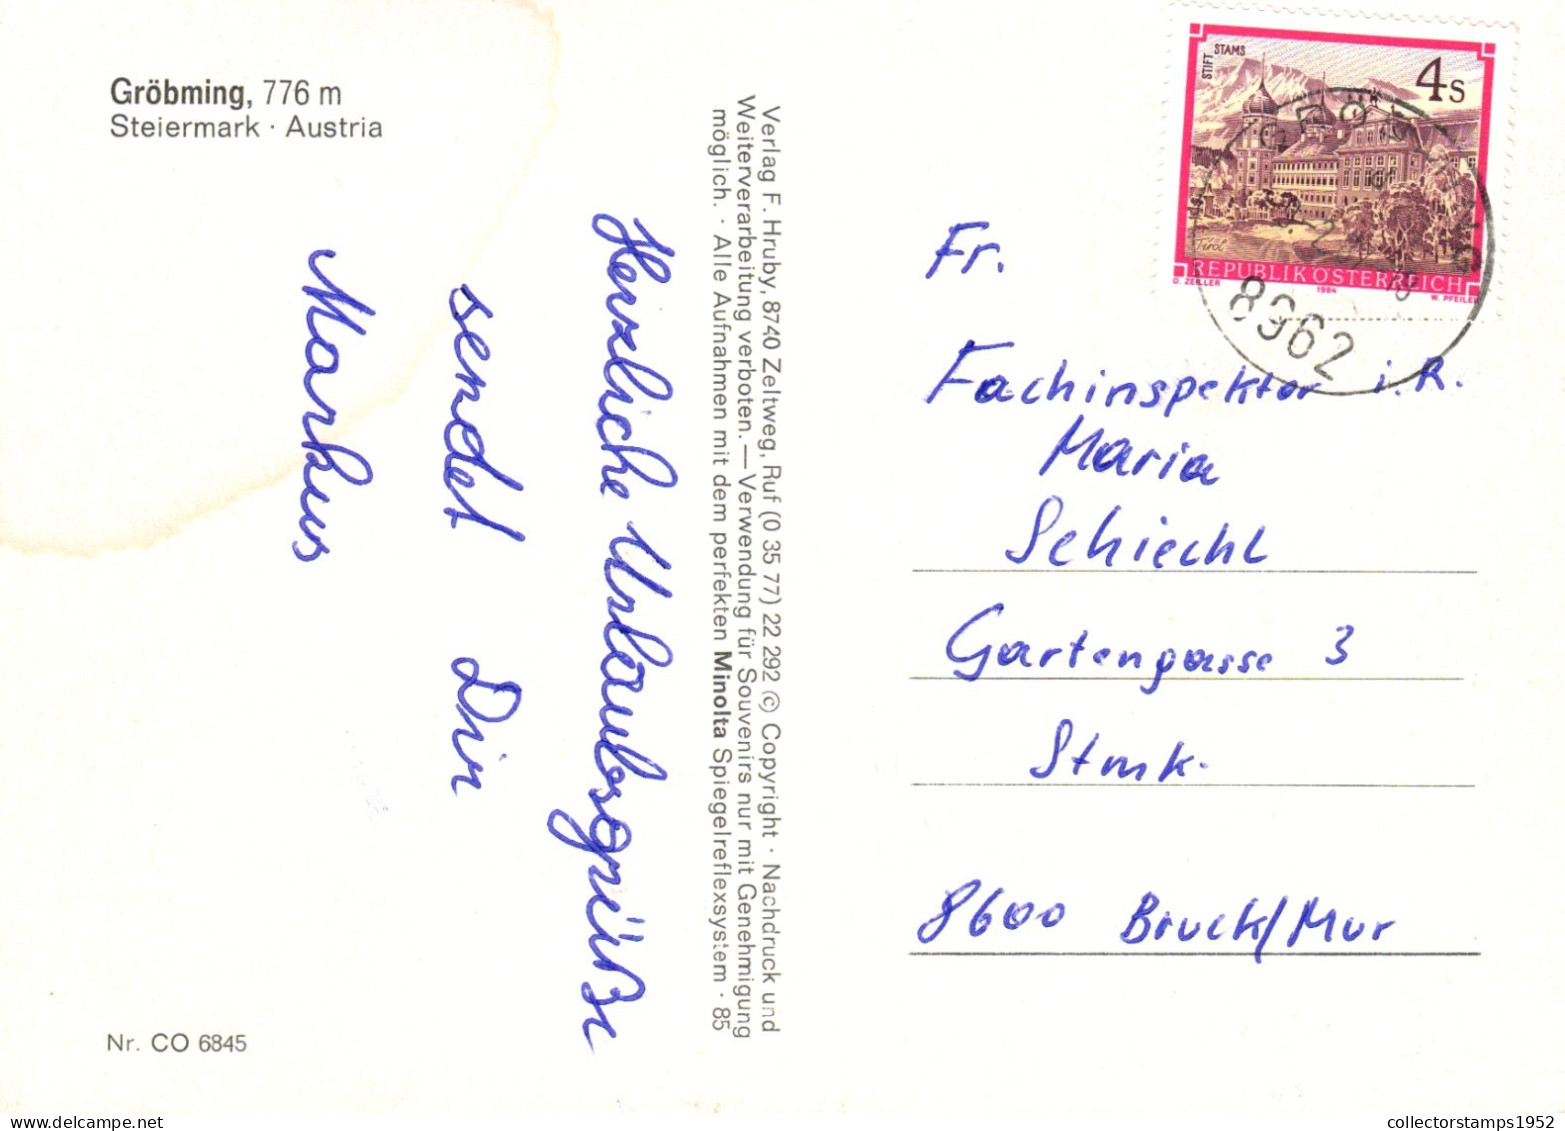 Gröbming, 776 m
Steiermark · Austria
Herzliche Urlaubsgrüße
sendet Dir
Markus
Nr. CO 6845
Verlag F. Hruby, 8740 Zeltweg, Ruf (0 35 77) 22 292 © Copyright · Nachdruck und
Weiterverarbeitung verboten. — Verwendung für Souvenirs nur mit Genehmigung
möglich. · Alle Aufnahmen mit dem perfekten Minolta Spiegelreflexsystem · 85
STIFT STAMS
4 S
Tirol
REPUBLIK ÖSTERREICH
O. ZEILLER 1984 W. PFEILER
GRÖBMING
8962
Fr.
Fachinspektor i. R.
Maria
Schiechl
Gartengasse 3
Stmk.
8600 Bruck/Mur
collectorstamps1952